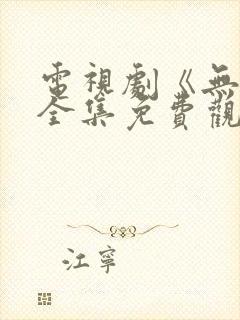 電視劇《無
全集免費觀
江寧